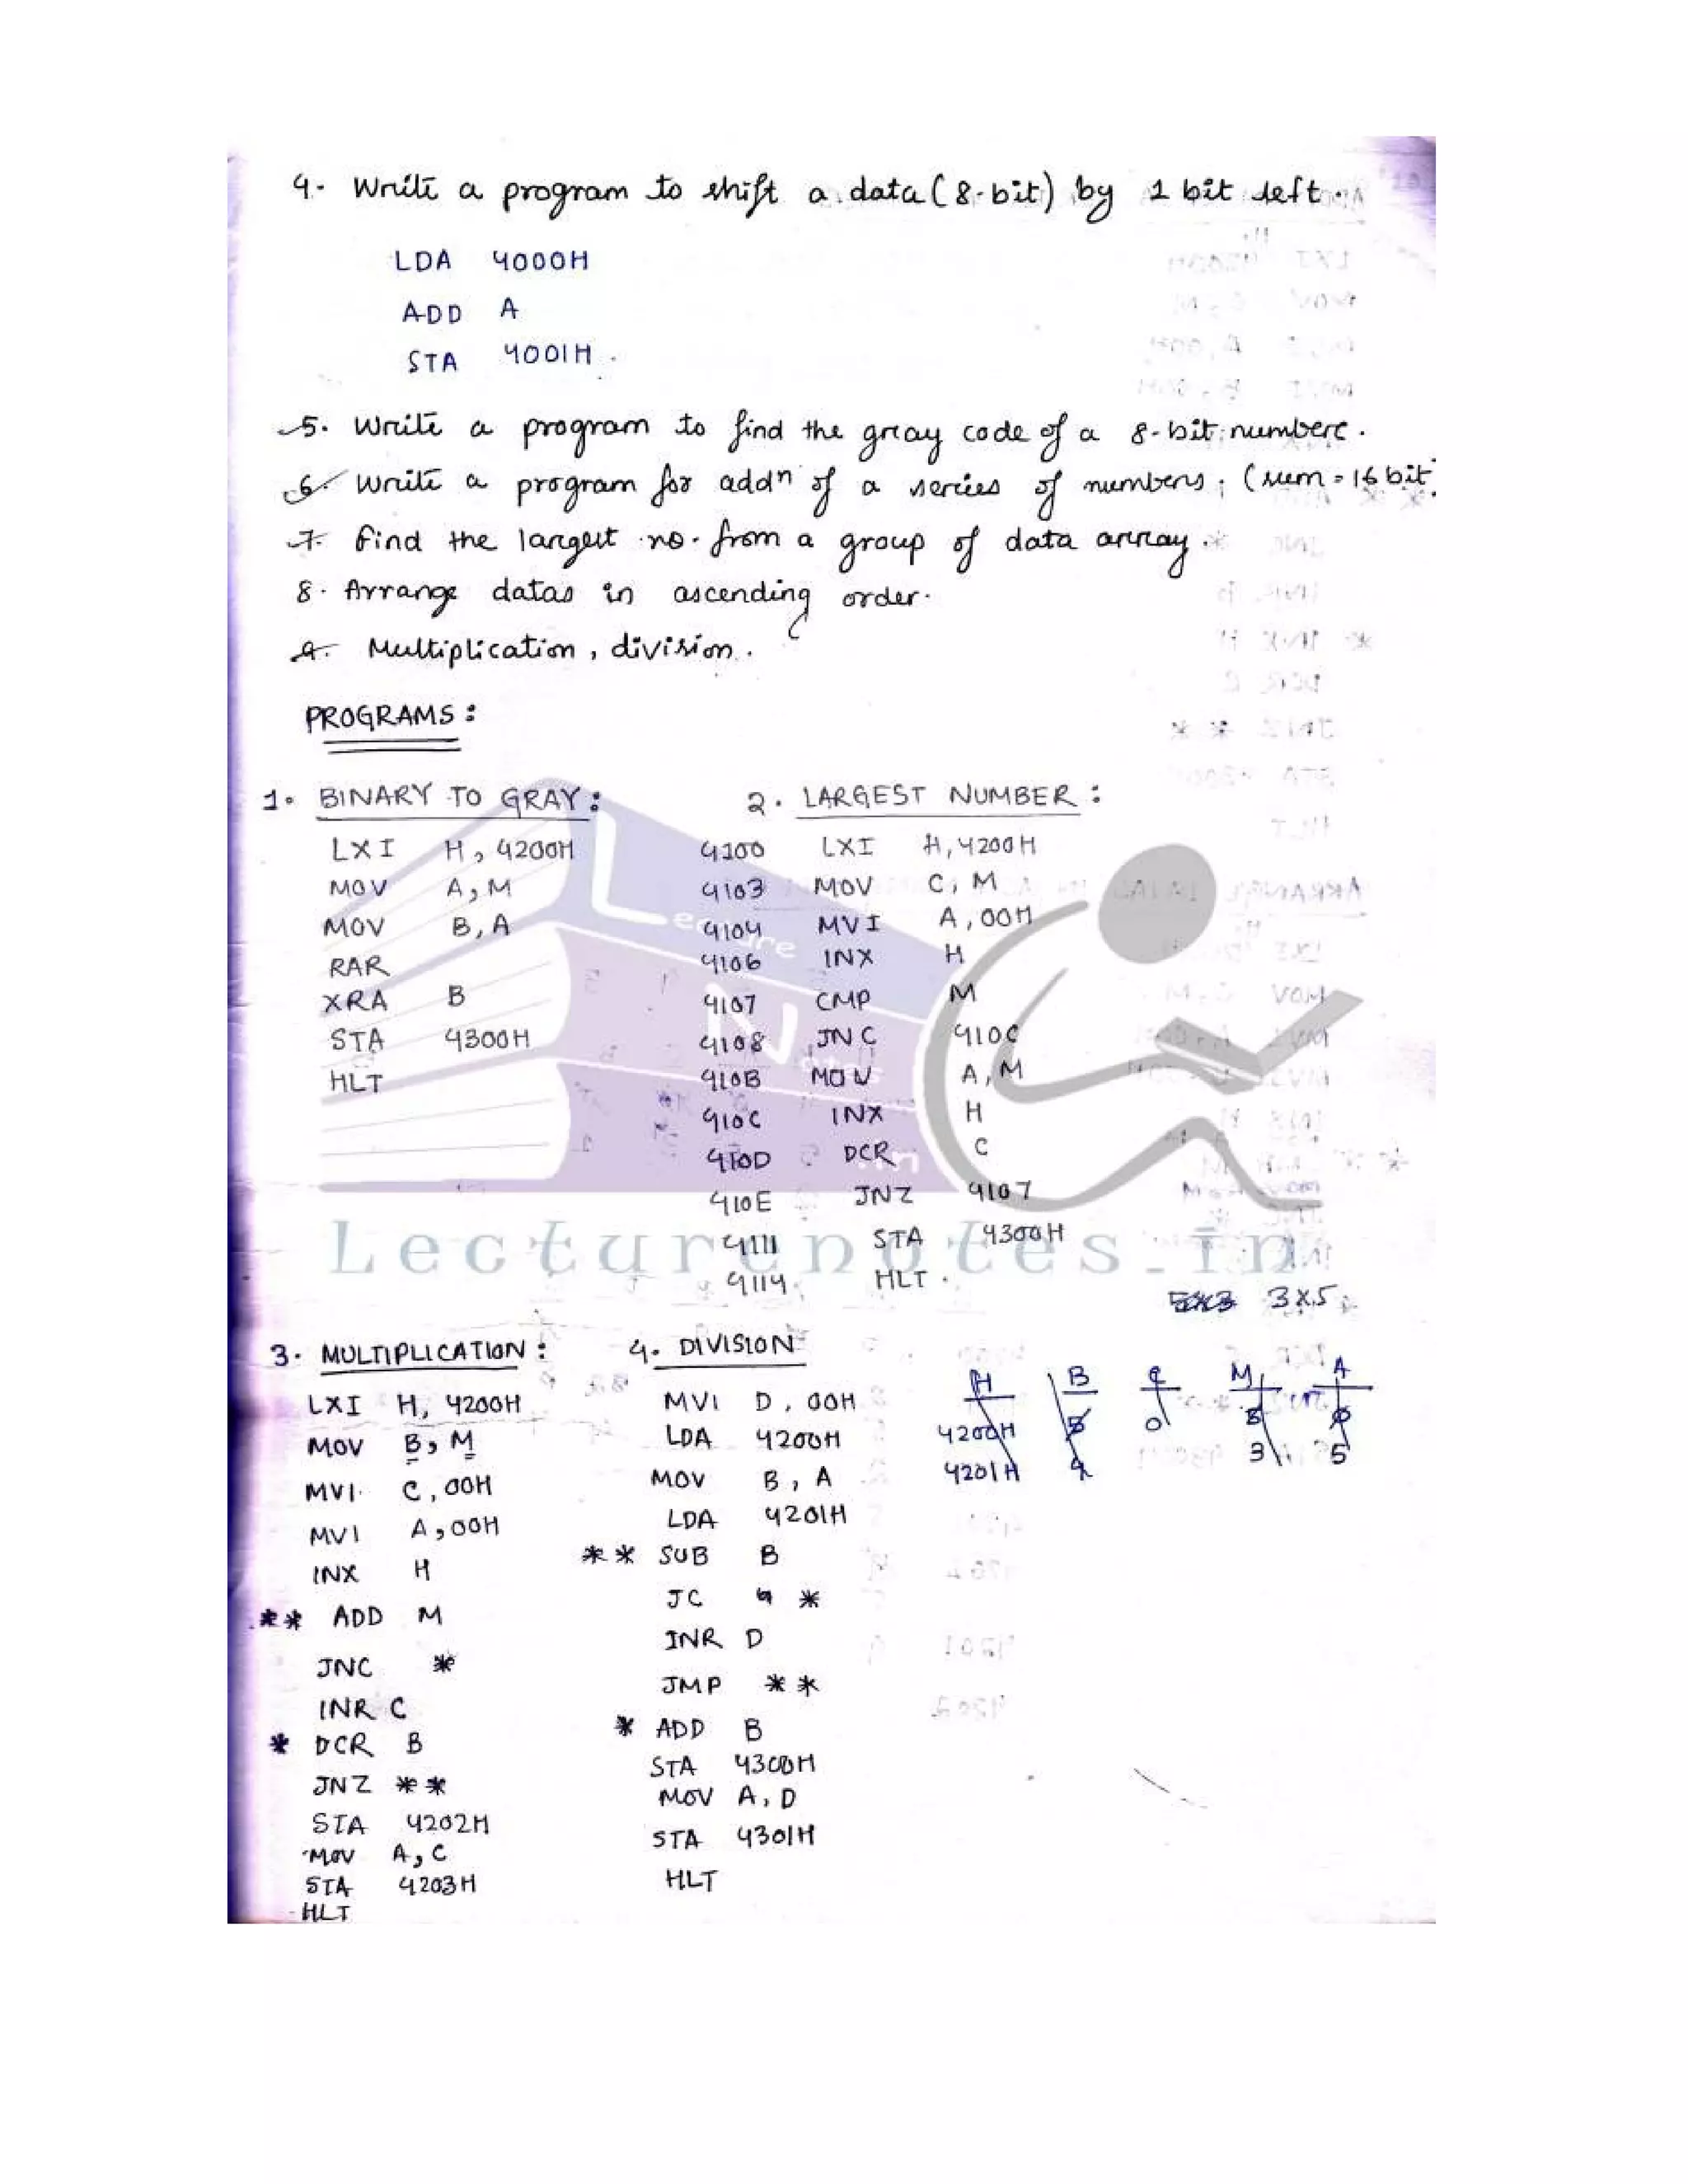 4. Write a program to shift a data (8-bit) by 1 bit left.
LDA 4000H
ADD A
STA 4001H.
5. Write a program to find the gray code of a 8-bit number.
6. Write a program for addn of a series of numbers; (sum = 16 bit
7. Find the largest no. from a group of data array.
8. Arrange datas in ascending order.
9. Multiplication, division.
PROGRAMS:
1. BINARY TO GRAY:
LXI H, 4200H
MOV A, M
MOV B, A
RAR
XRA B
STA 4300H
HLT
2. LARGEST NUMBER:
4100 LXI H, 4200H
4103 MOV C, M
4104 MVI A, 00H
4106 INX H
4107 CMP M
4108 JNC 410C
410B MOV A, M
410C INX H
410D DCR C
410E JNZ 4107
4111 STA 4300H
4114 HLT.
Lecture Notes.in
Lecturenotes.in
3. MULTIPLICATION:
LXI H, 4200H
MOV B, M
MVI C, 00H
MVI A, 00H
INX H
** ADD M
JNC *
INR C
* DCR B
JNZ **
STA 4202H
MOV A, C
STA 4203H
HLT
4. DIVISION
MVI D, 00H
LDA 4200H
MOV B, A
LDA 4201H
** SUB B
JC *
INR D
JMP **
* ADD B
STA 4300H
MOV A, D
STA 4301H
HLT
3x5
H B C M A
4200H 0
4201H 4 3 5